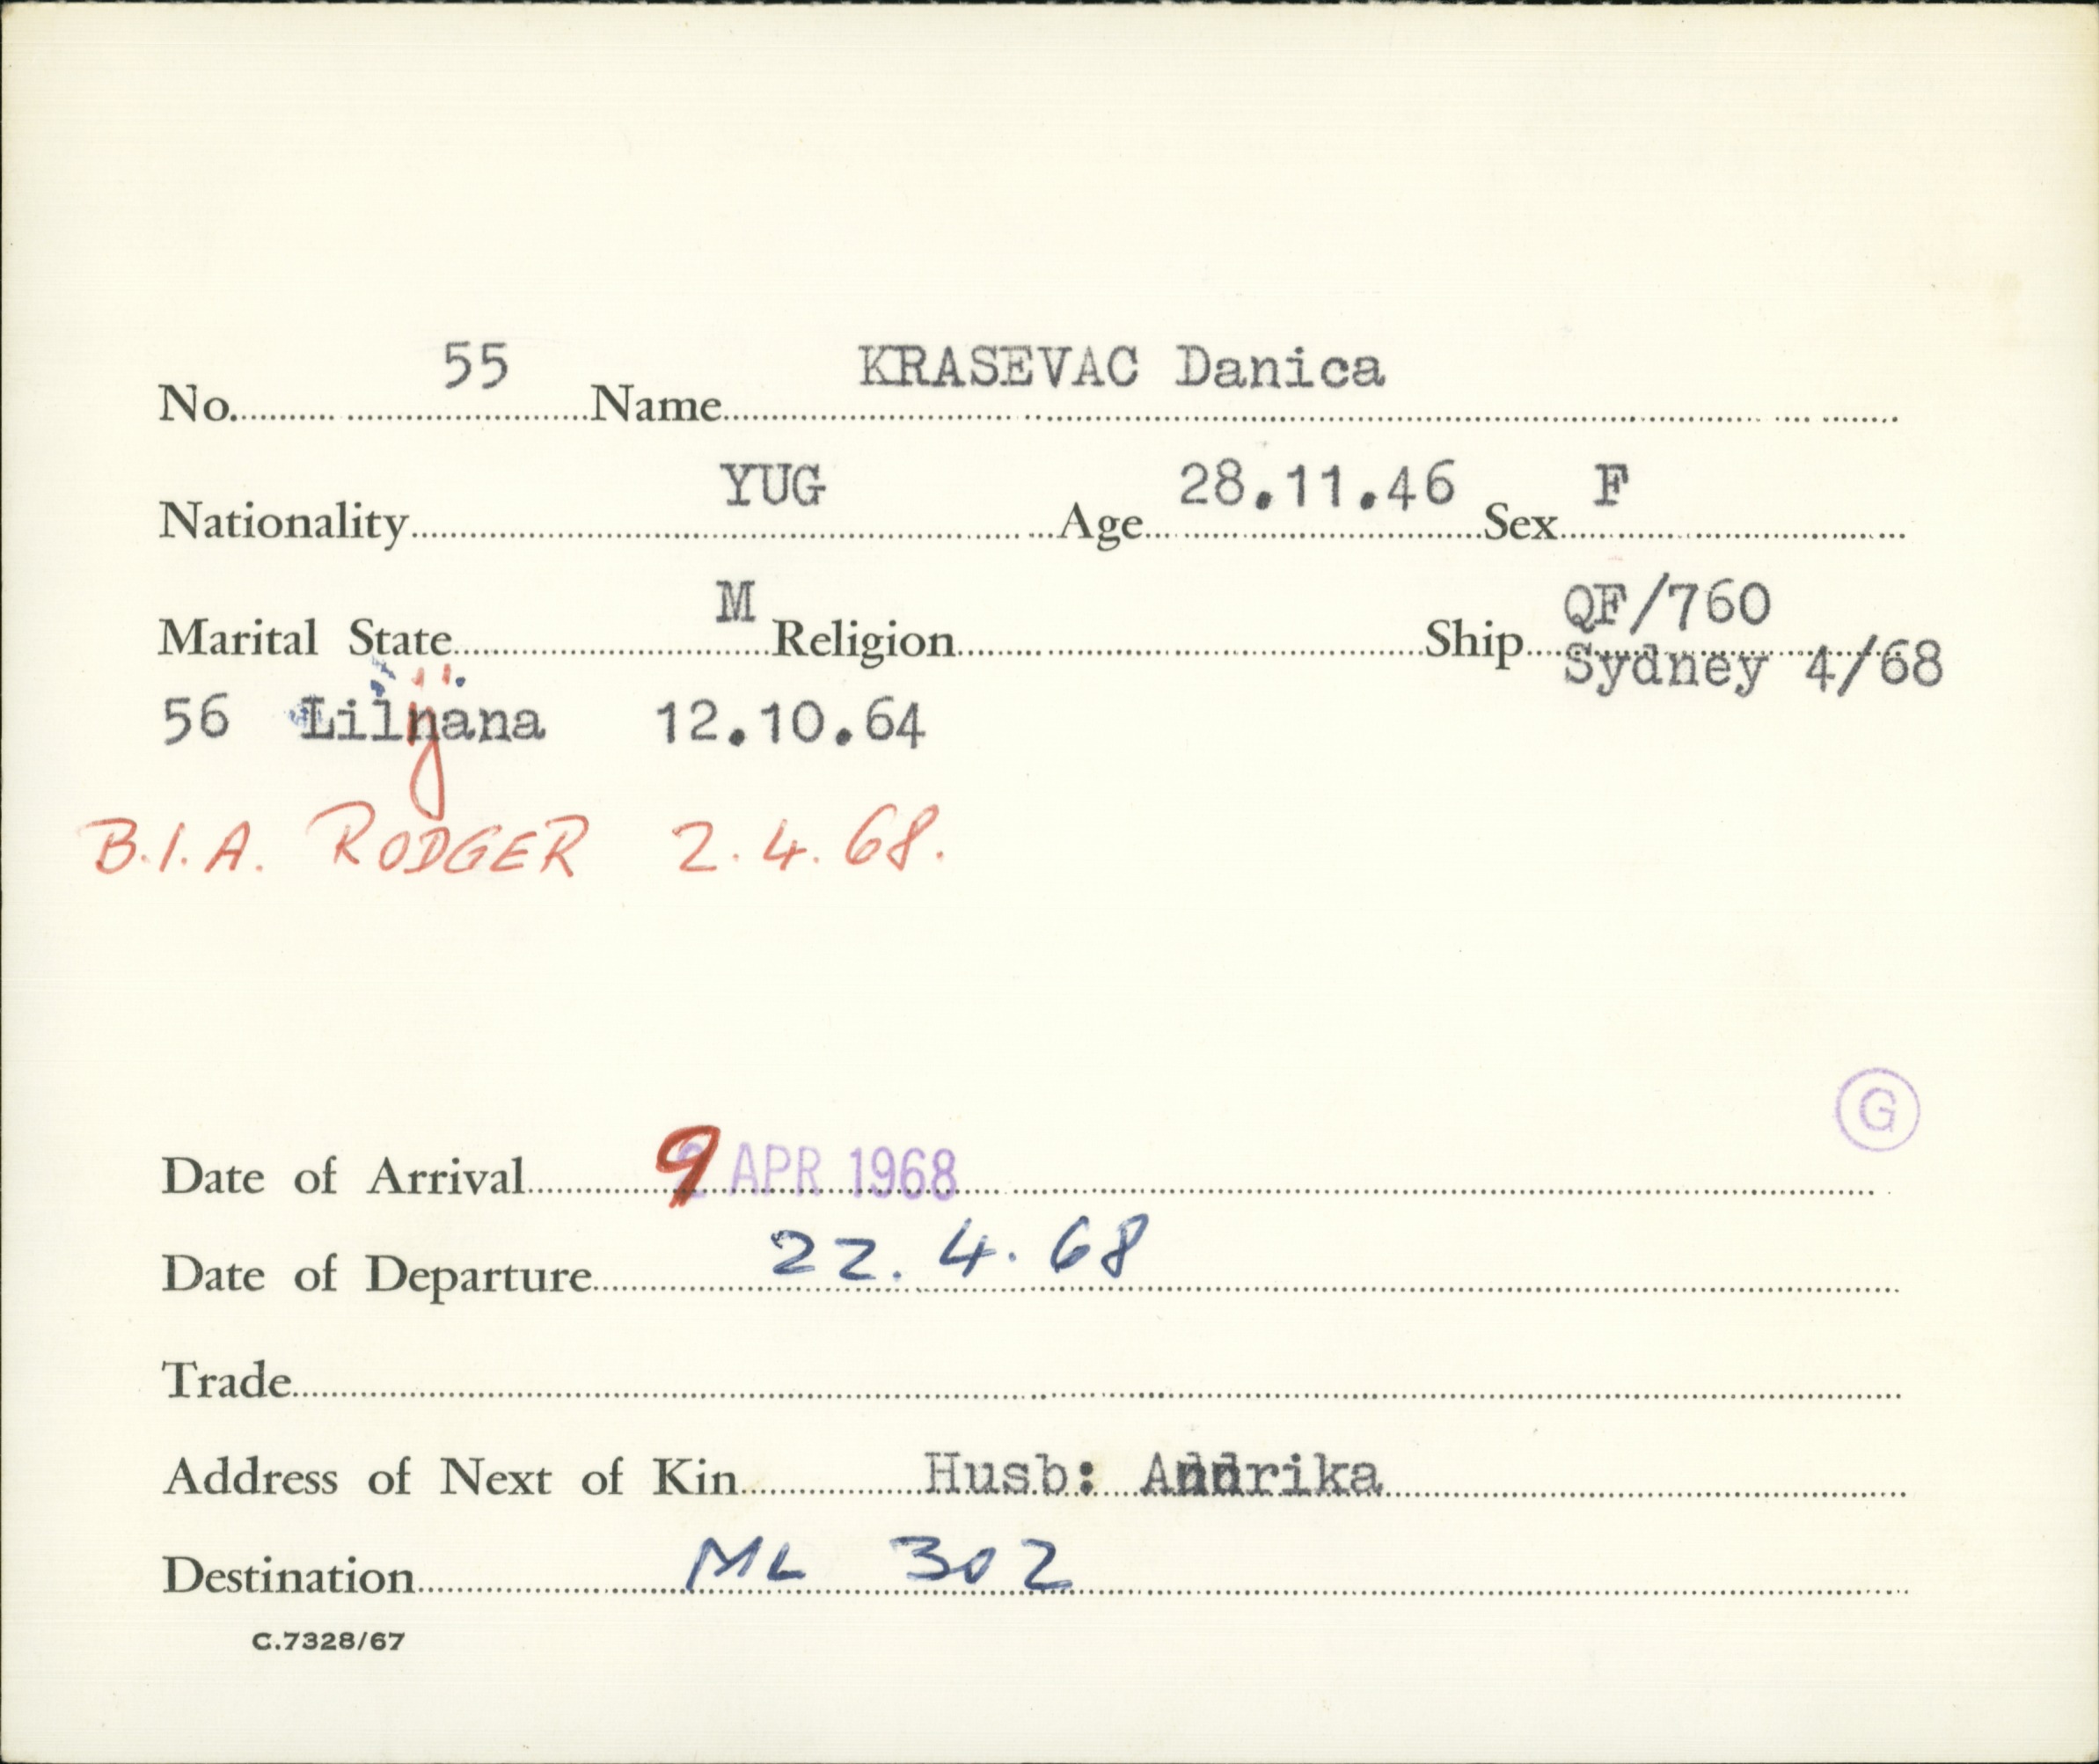 No. 55 Name KRASEVAC Danica
Nationality YUG Age 28.11.46 Sex F
Marital State M Religion Ship QF/760
Sydney 4/68
56 Liljana 12.10.64
B.I.A. RODGER 2.4.68.
G
Date of Arrival 9 APR 1968
Date of Departure 22.4.68
Trade
Address of Next of Kin Husb: Andrika
Destination ML 302
C.7328/67